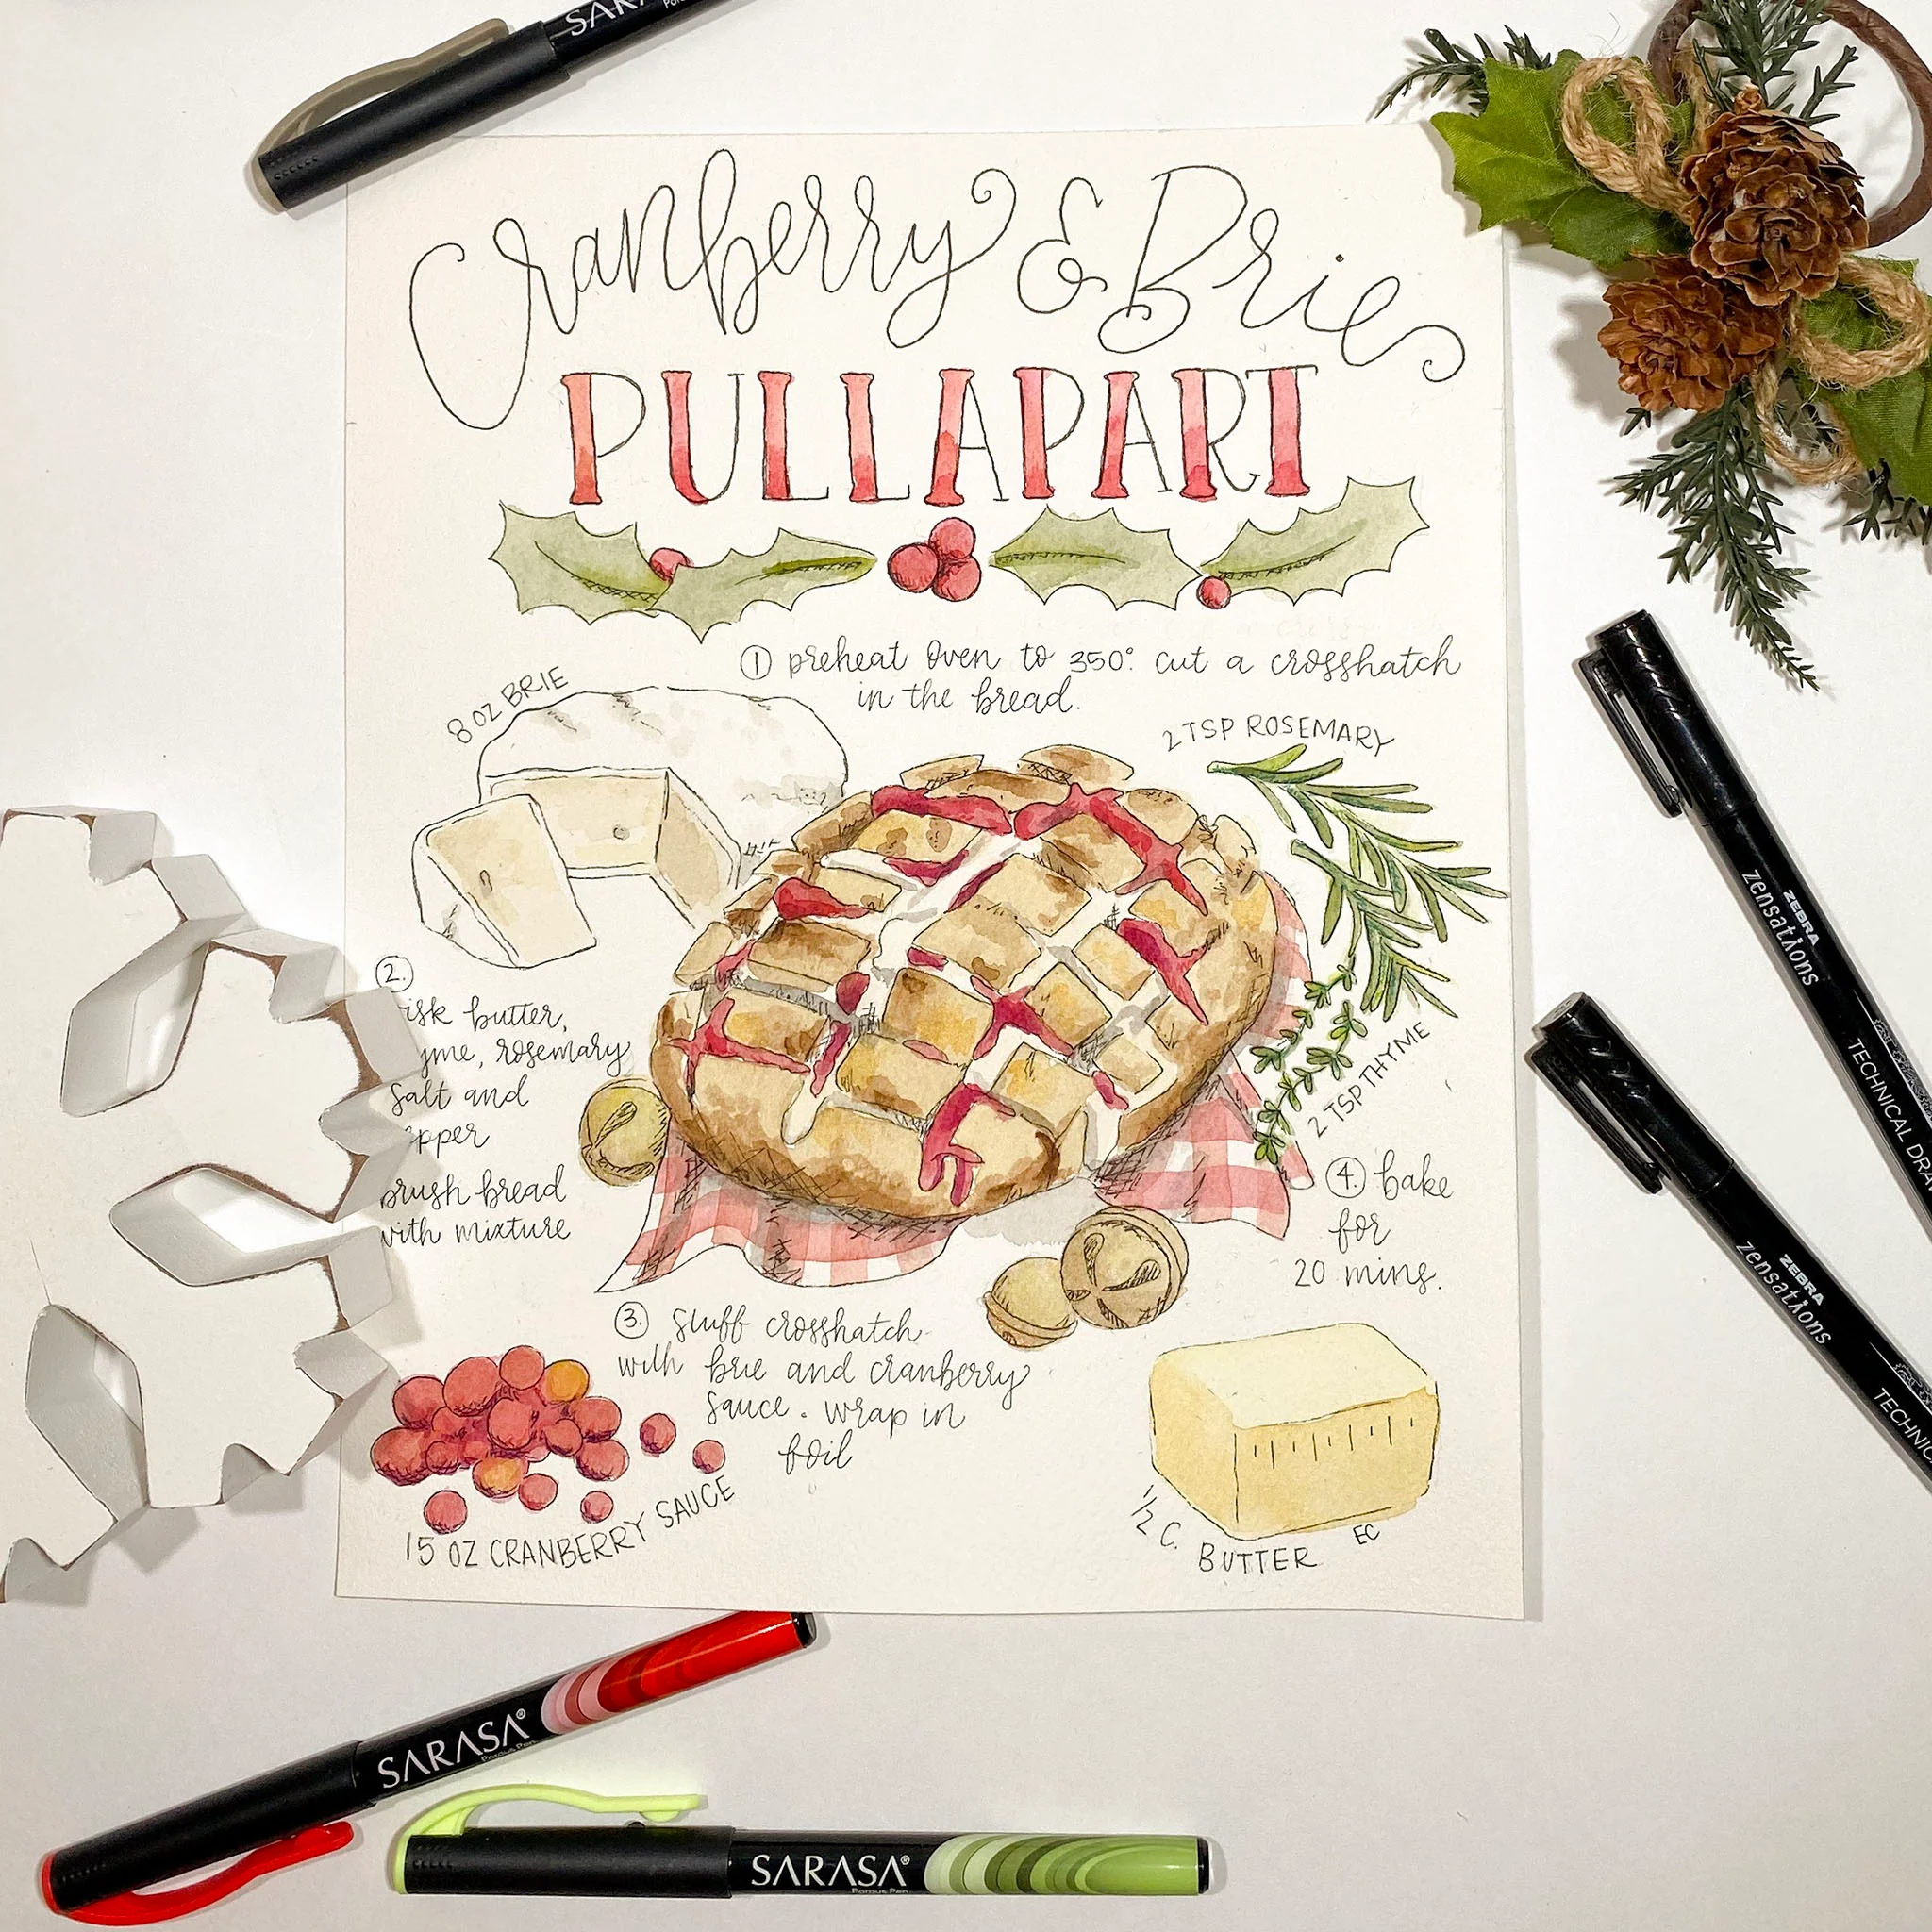 SARASA
Cranberry & Brie
PULLAPART
① preheat oven to 350°. cut a crosshatch
in the bread.
8 OZ BRIE
2 TSP ROSEMARY
2.
butter,
rosemary
salt and
brush bread
with mixture
2 TSP THYME
④. bake
for
20 mins.
③. stuff crosshatch
with brie and cranberry
sauce. wrap in
foil
15 OZ CRANBERRY SAUCE
1/2 C. BUTTER
EC
ZEBRA
zensations
TECHNICAL
ZEBRA
zensations
SARASA®
Porous Pen
SARASA®
Porous Pen